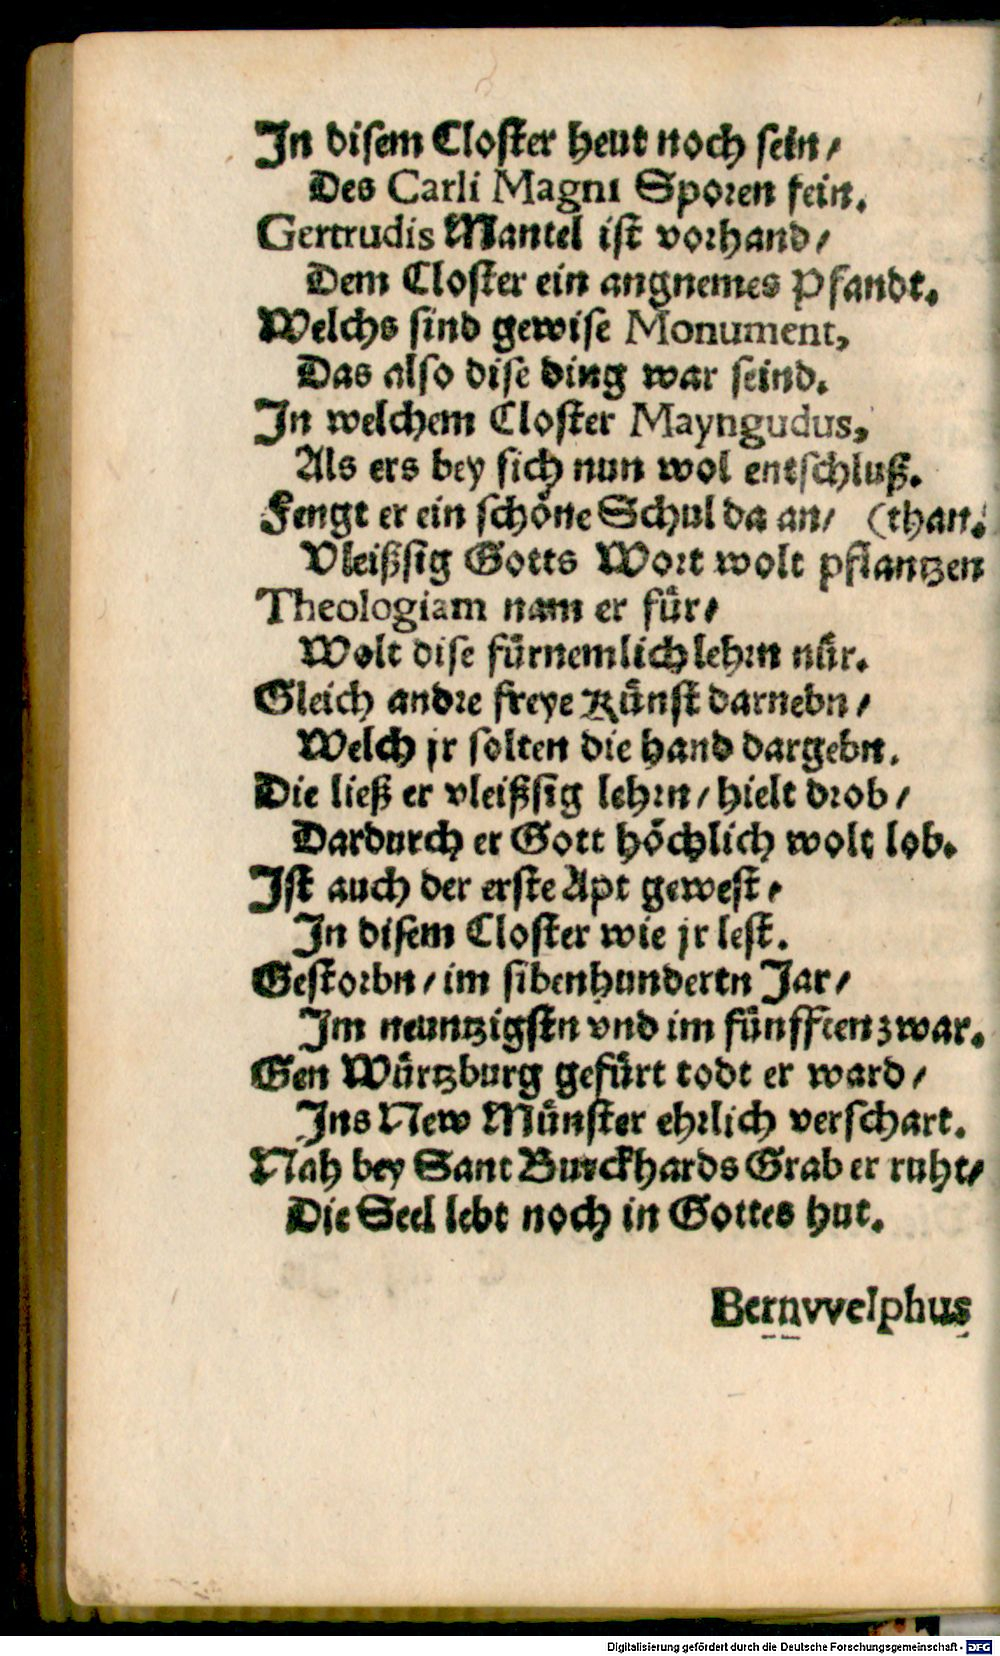 In disem Closter heut noch sein/
Des Carli Magni Sporen fein.
Gertrudis Mantel ist vorhand/
Dem Closter ein angnemes Pfandt.
Welchs sind gewise Monument,
Das also dise ding war seind.
In welchem Closter Mayngudus,
Als ers bey sich nun wol entschluß.
Fengt er ein schöne Schul da an/ (than.
Vleißsig Gotts Wort wolt pflantzen
Theologiam nam er für/
Wolt dise fürnemlich lehrn nür.
Gleich andre freye Künst darnebn/
Welch jr solten die hand dargebn.
Die ließ er vleißsig lehrn/ hielt drob/
Dardurch er Gott höchlich wolt lob.
Ist auch der erste Apt gewest/
In disem Closter wie jr lest.
Gestorbn/ im sibenhundertn Jar/
Im neuntzigstn vnd im fünfften zwar.
Gen Würtzburg gefürt todt er ward/
Ins New Münster ehrlich verschart.
Nah bey Sant Burckhards Grab er ruht/
Die Seel lebt noch in Gottes hut.
Bernvvelphus
Digitalisierung gefördert durch die Deutsche Forschungsgemeinschaft - DFG